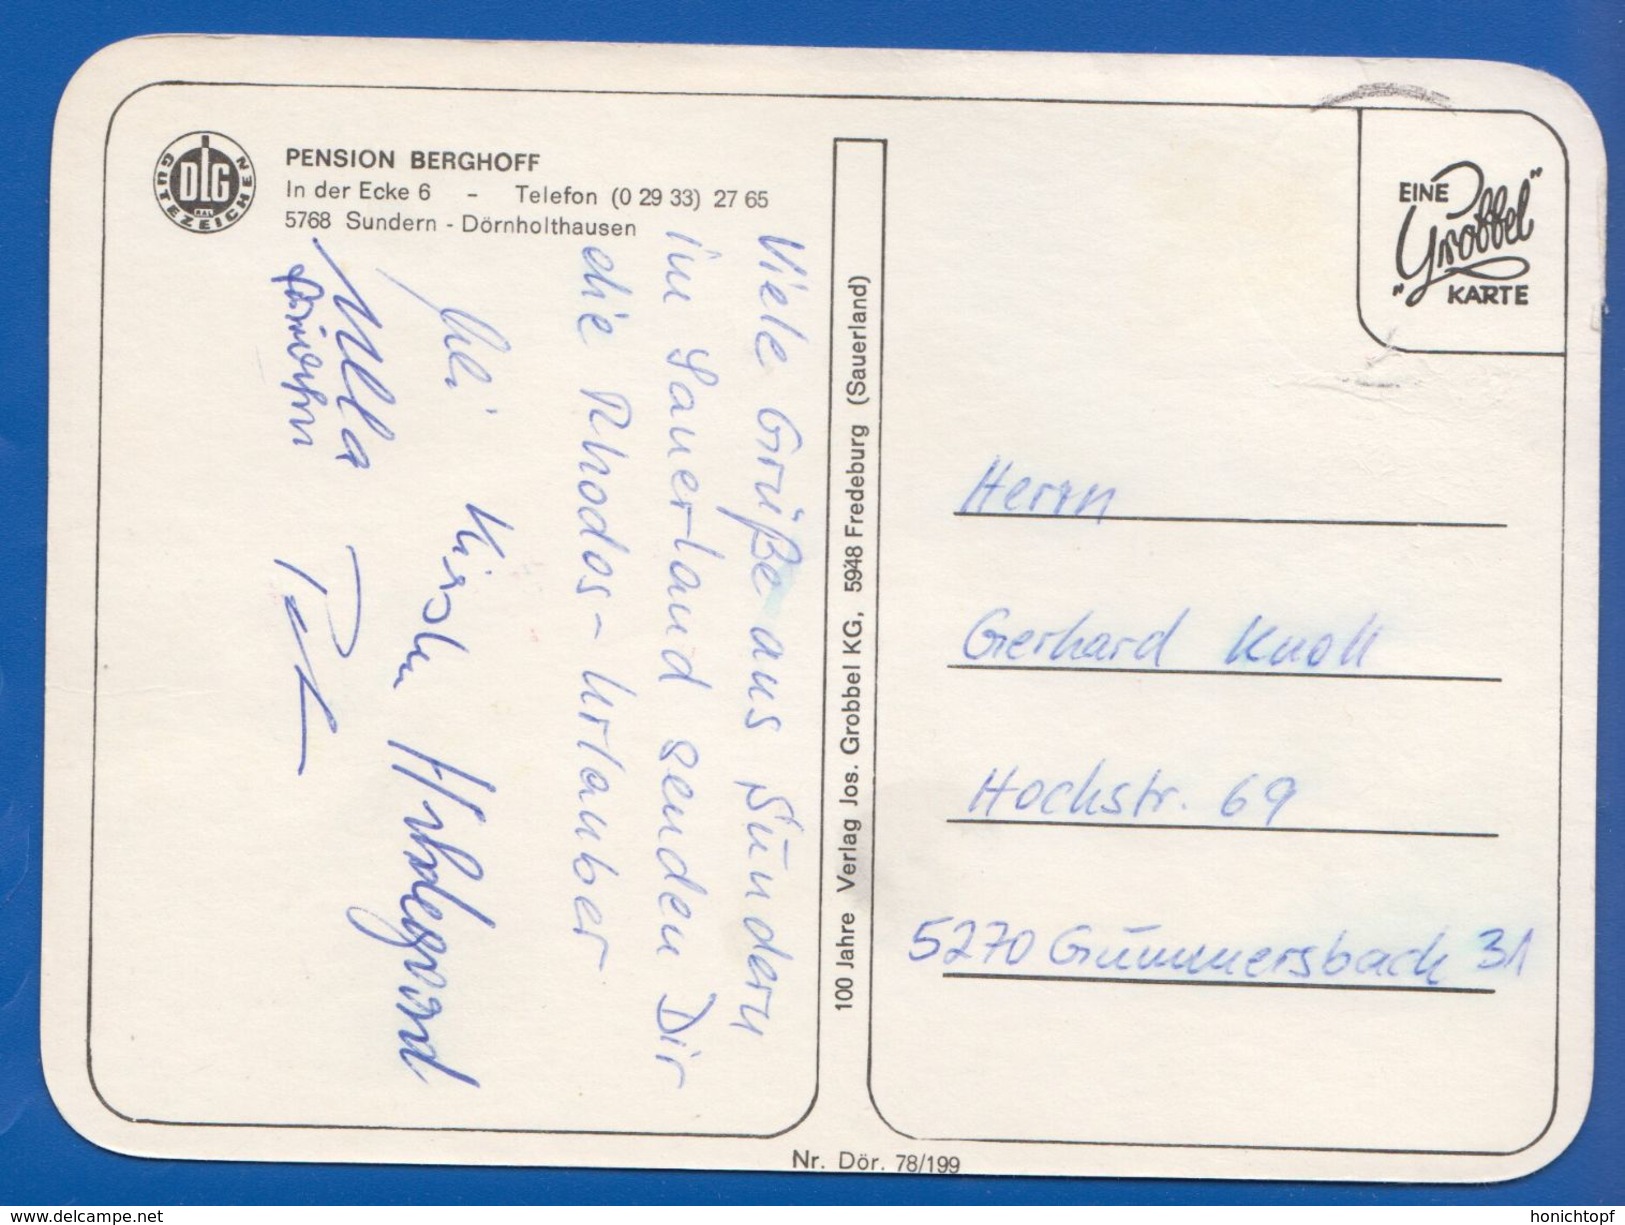 DLG
GÜTEZEICHEN
RAL
PENSION BERGHOFF
In der Ecke 6 - Telefon (0 29 33) 27 65
5768 Sundern - Dörnholthausen
Viele Grüße aus Sundern
im Sauerland senden Dir
die Rhodos-Urlauber
Uli Hildegard
Ulla
100 Jahre Verlag Jos. Grobbel KG, 5948 Fredeburg (Sauerland)
EINE
"Grobbel"
KARTE
Herrn
Gerhard Knoll
Hochstr. 69
5270 Gummersbach 31
Nr. Dör. 78/199
www.delcampe.net
honichtopf